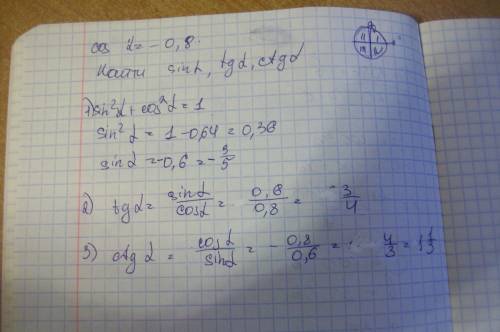 cos α = - 0,8
Найти sinα, tgα, ctgα
1) sin²α + cos²α = 1
sin²α = 1 - 0,64 = 0,36
sinα = -0,6 = -3/5
2) tgα = sinα/cosα = 0,6/0,8 = 3/4
3) ctg α = cosα/sinα = - 0,8/0,6 = 4/3 = 1 1/3